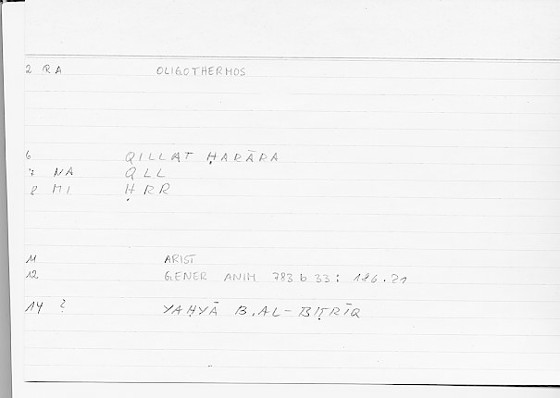 2 RA OLIGOTHERMOS
6 QILLAT ḤARĀRA
7 NA QLL
8 MI ḤRR
11 ARIST
12 GENER ANIM 783 b 33 : 186.21
14 ? YAḤYĀ B. AL-BIṬRĪQ